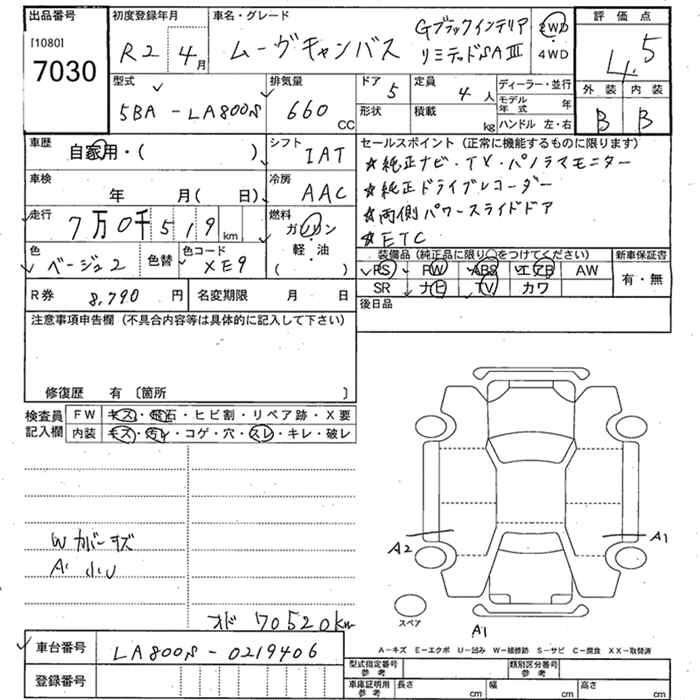 出品番号
[1080]
7030
初度登録年月
R2年4月
車名・グレード
ムーヴキャンバス
Gブラックインテリア
リミテッドSAⅢ
2WD
4WD
評価点
4.5
外装 内装
B B
型式
5BA-LA800S
排気量
660 CC
ドア 5
定員 4人
形状
積載 kg
ディーラー・並行
モデル年式 年
ハンドル 左・右
車歴
自家用・( )
シフト
IAT
車検
年 月( 日)
冷房
AAC
走行
7万0千519km
燃料
ガソリン
軽・油
( )
色
ベージュ2
色替
色コード
XE9
R券 8,790円
名変期限 月 日
セールスポイント(正常に機能するものに限ります)
☆純正ナビ・TV・パノラマモニター
☆純正ドライブレコーダー
☆両側パワースライドドア
☆ETC
装備品(純正品に限り○をつけてください)
新車保証書
PS PW ABS エアB AW
SR ナビ TV カワ
有・無
後日品
注意事項申告欄(不具合内容等は具体的に記入して下さい)
修復歴 有〔箇所 〕
検査員記入欄
FW キズ・飛石・ヒビ割・リペア跡・X要
内装 キズ・汚レ・コゲ・穴・スレ・キレ・破レ
Wガーキズ
A'小U
オド 70520km
A2
A1
スペア
A1
A-キズ E-エクボ U-凹み W-補修跡 S-サビ C-腐食 XX-取替済
車台番号 LA800S-0219406
登録番号
型式指定番号 参考
類別区分番号 参考
車庫証明用 参考
長さ cm
幅 cm
高さ cm